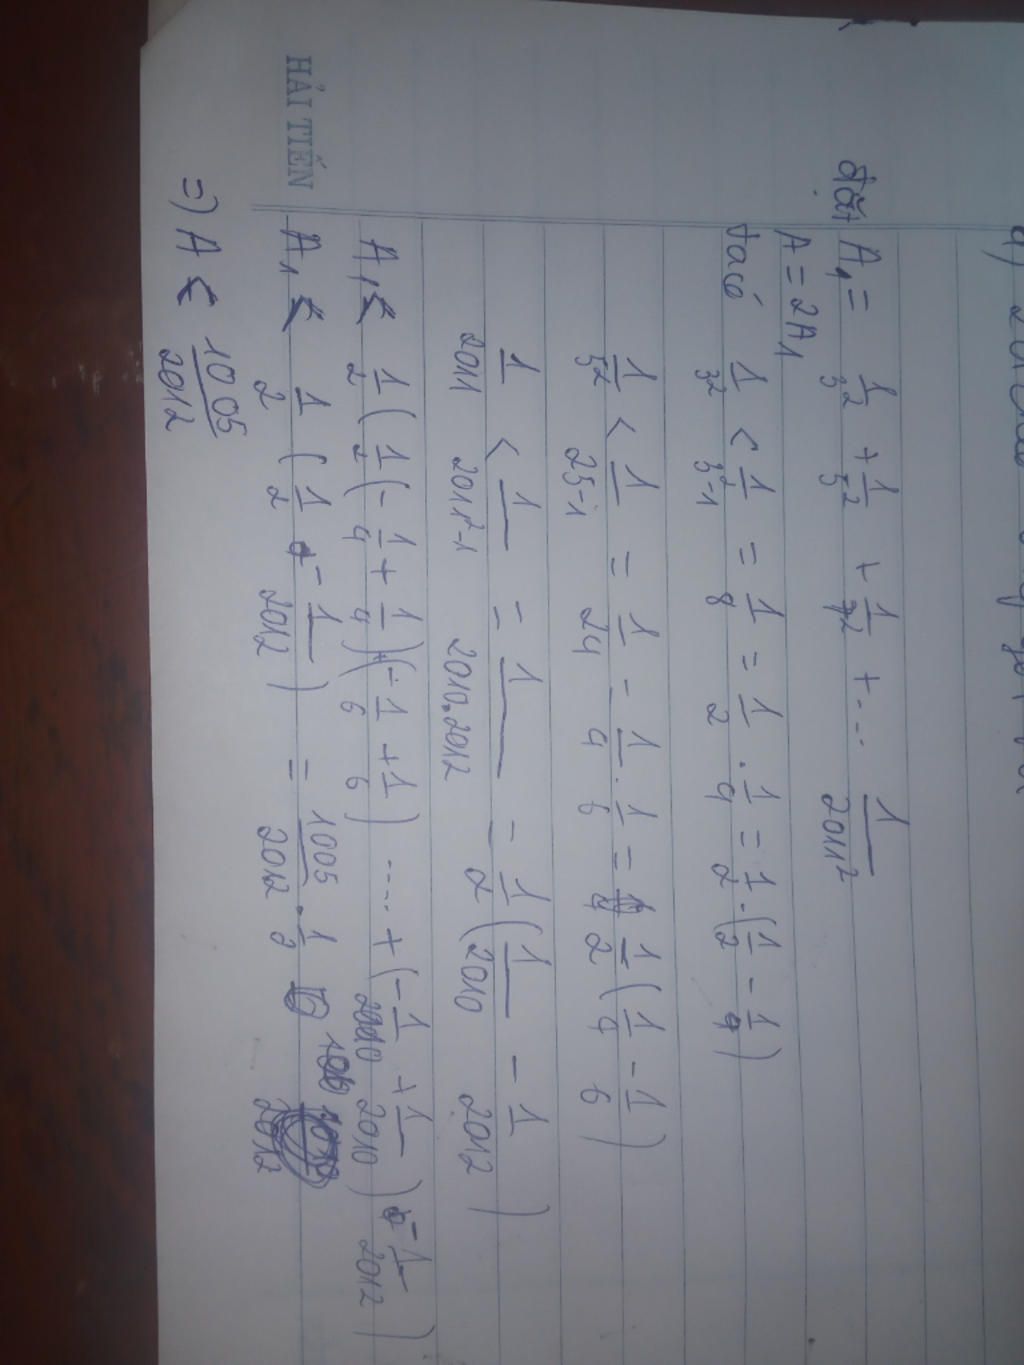 a)
Đặt A₁ = 1/3² + 1/5² + 1/7² + ... 1/2011²
A = 2A₁
Ta có 1/3² < 1/3²-1 = 1/8 = 1/2 . 1/4 = 1/2 . (1/2 - 1/4)
1/5² < 1/25-1 = 1/24 - 1/4 . 1/6 = 1/2 (1/4 - 1/6)
1/2011 < 1/2011²-1 = 1/2010.2012 = 1/2 (1/2010 - 1/2012)
A₁ < 1/2 (1/2 (- 1/4 + 1/4) + (- 1/6 + 1/6) .... + (- 1/2010 + 1/2010) - 1/2012)
A₁ < 1/2 (1/2 - 1/2012) = 1005/2012 . 1/2
=) A < 1005/2012
HẢI TIẾN